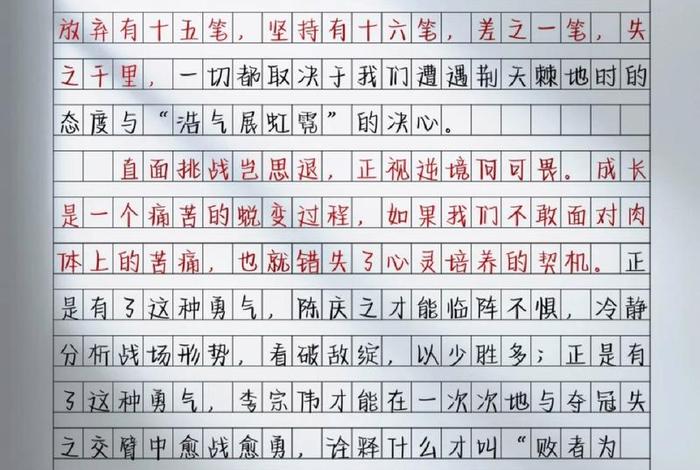 放弃有十五笔，坚持有十六笔，差之一笔，失
之千里，一切都取决于我们遭遇荆天棘地时的
态度与“浩气展虹霓”的决心。
直面挑战岂思退，正视逆境何可畏。成长
是一个痛苦的蜕变过程，如果我们不敢面对肉
体上的苦痛，也就错失了心灵培养的契机。正
是有了这种勇气，陈庆之才能临阵不惧，冷静
分析战场形势，看破敌绽，以少胜多；正是有
了这种勇气，李宗伟才能在一次次地与夺冠失
之交臂中愈战愈勇，诠释什么才叫“败者为